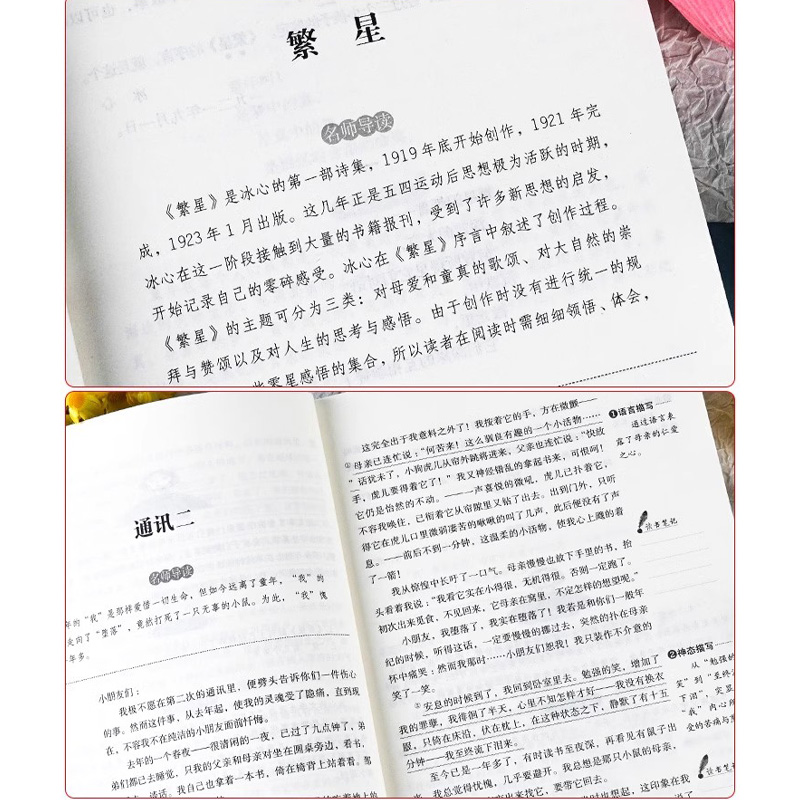 繁 星
名师导读
《繁星》是冰心的第一部诗集，1919年底开始创作，1921年完
成，1923年1月出版。这几年正是五四运动后思想极为活跃的时期，
冰心在这一阶段接触到大量的书籍报刊，受到了许多新思想的启发，
开始记录自己的零碎感受。冰心在《繁星》序言中叙述了创作过程。
《繁星》的主题可分为三类：对母爱和童真的歌颂、对大自然的崇
拜与赞颂以及对人生的思考与感悟。由于创作时没有进行统一的规
些零星感悟的集合，所以读者在阅读时需细细领悟、体会，
通讯二
名师导读
年的“我”是那样爱惜一切生命，但如今远离了童年，“我”的
失向了“堕落”，竟然打死了一只无事的小鼠。为此，“我”愧
年多。
小朋友们：
我极不愿在第二次的通讯里，便劈头告诉你们一件伤心
的事。然而这件事，从去年起，使我的灵魂受了隐痛，直到现
在，不容我不在纯洁的小朋友面前忏悔。
去年的一个春夜——很清闲的一夜，已过了九点钟了，弟
弟们都已去睡觉，只我的父亲和母亲对坐在圆桌旁边，看书，
谈话。我自己也拿着一本书，倚在椅背上站着看。那
这完全出于我意料之外了！我按着它的手，方在微颤——
①母亲已连忙说：“何苦来！这么驯良有趣的一个小活物……
”话犹未了，小狗虎儿从帘外跳将进来，父亲也连忙说：“快放
手，虎儿要得着它了！”我又神经错乱的拿起书来，可恨呵！
它仍是怡然的不动。——一声喜悦的微吼，虎儿已扑着它，
不容我唤住，已衔着它从帘隙里又钻了出去。出到门外，只听
得它在虎儿口里微弱凄苦的啾啾的叫了几声，此后便没有了声
息。——前后不到一分钟，这温柔的小活物，使我心上飕的着
了一箭！
我从惊惶中长吁了一口气。母亲慢慢也放下手里的书，抬
头看着我说：“我看它实在小得很，无机得很。否则一定跑了。
初次出来觅食，不见回来，它母亲在窝里，不定怎样的想望呢。”
小朋友，我堕落了，我实在堕落了！我若是和你们一般年
纪的时候，听得这话，一定要慢慢的挪过去，突然的扑在母亲
怀中痛哭；然而我那时……小朋友们恕我！我只装作不介意的
笑了一笑。
②安息的时候到了，我回到卧室里去。勉强的笑，增加了
我的罪孽，我徘徊了半天，心里不知怎样才好——我没有换衣
服，只倚在床沿，伏在枕上，在这种状态之下，静默了有十五
分钟——我至终流下泪来。
至今已是一年多了，有时读书至夜深，再看见有鼠子出
我总觉得忧愧，几乎要避开。我总想是那只小鼠的母亲，
出来找它，要带它回去。
❶语言描写
通过语言表
露了母亲的仁爱
之心。
读书笔记
❷神态描写
从“勉强的
笑”到“至终流
下泪”，突显
“我”内心所
受的苦痛与
读书笔记